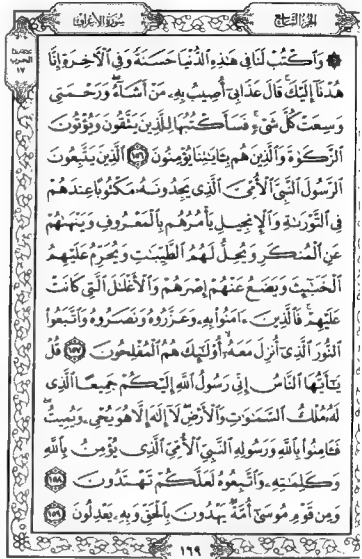 سُورَةُ الأَعْرَافِ
الجُزْءُ التَّاسِعُ
۞ وَٱكْتُبْ لَنَا فِى هَٰذِهِ ٱلدُّنْيَا حَسَنَةً وَفِى ٱلْءَاخِرَةِ إِنَّا
هُدْنَآ إِلَيْكَ ۚ قَالَ عَذَابِىٓ أُصِيبُ بِهِۦ مَنْ أَشَآءُ ۖ وَرَحْمَتِى
وَسِعَتْ كُلَّ شَىْءٍ ۚ فَسَأَكْتُبُهَا لِلَّذِينَ يَتَّقُونَ وَيُؤْتُونَ
ٱلزَّكَوٰةَ وَٱلَّذِينَ هُم بِـَٔايَٰتِنَا يُؤْمِنُونَ ١٥٦ ٱلَّذِينَ يَتَّبِعُونَ
ٱلرَّسُولَ ٱلنَّبِىَّ ٱلْأُمِّىَّ ٱلَّذِى يَجِدُونَهُۥ مَكْتُوبًا عِندَهُمْ
فِى ٱلتَّوْرَىٰةِ وَٱلْإِنجِيلِ يَأْمُرُهُم بِٱلْمَعْرُوفِ وَيَنْهَىٰهُمْ
عَنِ ٱلْمُنكَرِ وَيُحِلُّ لَهُمُ ٱلطَّيِّبَٰتِ وَيُحَرِّمُ عَلَيْهِمُ
ٱلْخَبَٰٓئِثَ وَيَضَعُ عَنْهُمْ إِصْرَهُمْ وَٱلْأَغْلَٰلَ ٱلَّتِى كَانَتْ
عَلَيْهِمْ ۚ فَٱلَّذِينَ ءَامَنُوا۟ بِهِۦ وَعَزَّرُوهُ وَنَصَرُوهُ وَٱتَّبَعُوا۟
ٱلنُّورَ ٱلَّذِىٓ أُنزِلَ مَعَهُۥٓ ۙ أُو۟لَٰٓئِكَ هُمُ ٱلْمُفْلِحُونَ ١٥٧ قُلْ
يَٰٓأَيُّهَا ٱلنَّاسُ إِنِّى رَسُولُ ٱللَّهِ إِلَيْكُمْ جَمِيعًا ٱلَّذِى
لَهُۥ مُلْكُ ٱلسَّمَٰوَٰتِ وَٱلْأَرْضِ ۖ لَآ إِلَٰهَ إِلَّا هُوَ يُحْىِۦ وَيُمِيتُ ۖ
فَـَٔامِنُوا۟ بِٱللَّهِ وَرَسُولِهِ ٱلنَّبِىِّ ٱلْأُمِّىِّ ٱلَّذِى يُؤْمِنُ بِٱللَّهِ
وَكَلِمَٰتِهِۦ وَٱتَّبِعُوهُ لَعَلَّكُمْ تَهْتَدُونَ ١٥٨
وَمِن قَوْمِ مُوسَىٰٓ أُمَّةٌ يَهْدُونَ بِٱلْحَقِّ وَبِهِۦ يَعْدِلُونَ ١٥٩
الحزب
١٧
١٦٩